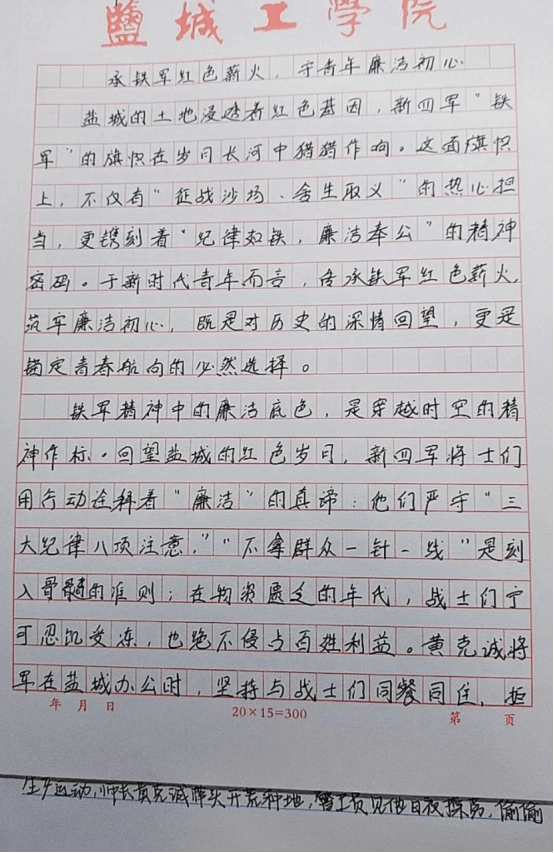 鹽城工學院
承铁军红色薪火，守青年廉洁初心
盐城的土地浸透着红色基因，新四军“铁
军”的旗帜在岁月长河中猎猎作响。这面旗帜
上，不仅有“征战沙场、舍生取义”的热心担
当，更镌刻着“纪律如铁，廉洁奉公”的精神
密码。于新时代青年而言，传承铁军红色薪火，
筑牢廉洁初心，既是对历史的深情回望，更是
锚定青春航向的必然选择。
铁军精神中的廉洁底色，是穿越时空的精
神作标。回望盐城的红色岁月，新四军将士们
用行动诠释着“廉洁”的真谛：他们严守“三
大纪律八项注意，”“不拿群众一针一线”是刻
入骨髓的准则；在物资匮乏的年代，战士们宁
可忍饥受冻，也绝不侵占百姓利益。黄克诚将
军在盐城办公时，坚持与战士们同餐同住，拒
年 月 日
20×15=300
第 页
生产运动，师长黄克诚带头开荒种地，警卫员见他日夜操劳，偷偷